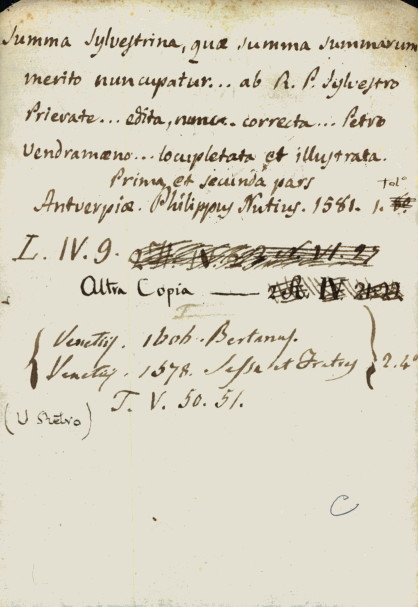 Summa Sylvestrina, quæ summa summarum
merito nuncupatur... ab R. P. Sylvestro
Prierate... edita, nunc correcta... Petro
Vendramæno... locupletata et illustrata.
Prima et secunda pars
Antverpiæ. Philippus Nutius. 1581. 1. fol°
L. IV. 9.
Altra Copia —
Venetiis. 1606. Bertanus.
Venetiis. 1578. Sessa et Fratres 2. 4°
T. V. 50. 51.
(V Retro)
C